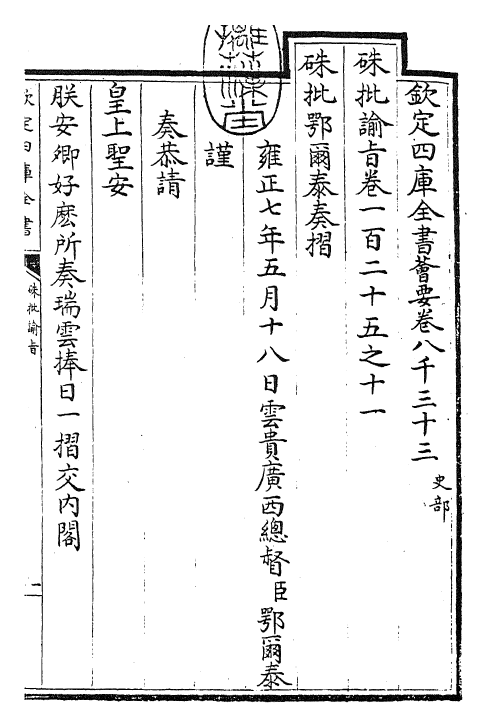 欽定四庫全書薈要卷八千三十三
史部
硃批諭旨卷一百二十五之十一
硃批鄂爾泰奏摺
雍正七年五月十八日雲貴廣西總督臣鄂爾泰
謹
奏恭請
皇上聖安
朕安卿好麽所奏瑞雲捧日一摺交内閣
欽定四庫全書
硃批諭旨